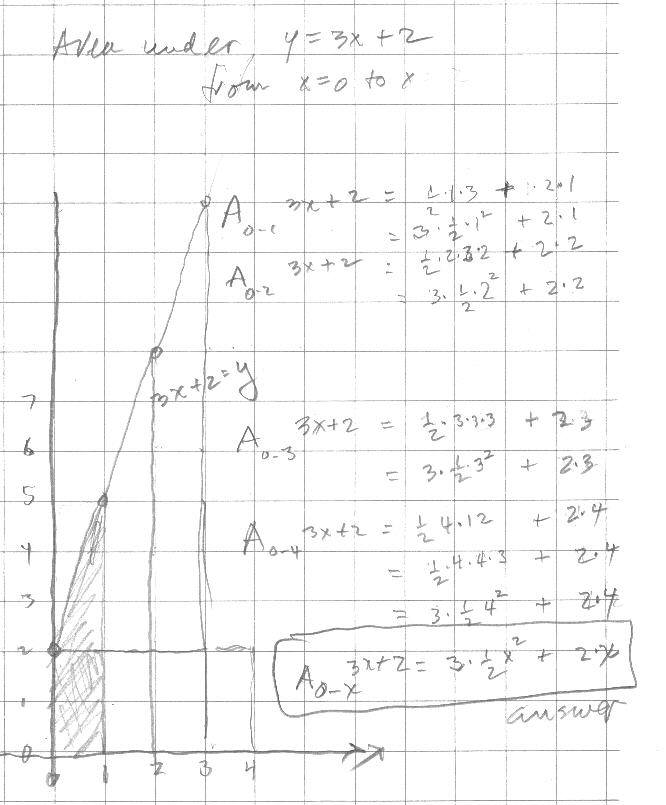 Area under y = 3x + 2
from x = 0 to x
A₀₋₁ 3x+2 = ½·1·3 + 2·1
= 3·½·1² + 2·1
A₀₋₂ 3x+2 = ½·2·3·2 + 2·2
= 3·½·2² + 2·2
3x+2=y
A₀₋₃ 3x+2 = ½·3·3·3 + 2·3
= 3·½·3² + 2·3
A₀₋₄ 3x+2 = ½ 4·12 + 2·4
= ½·4·4·3 + 2·4
= 3·½ 4² + 2·4
A₀₋ₓ 3x+2 = 3·½x² + 2·x
answer
7
6
5
4
3
2
1
0
0 1 2 3 4